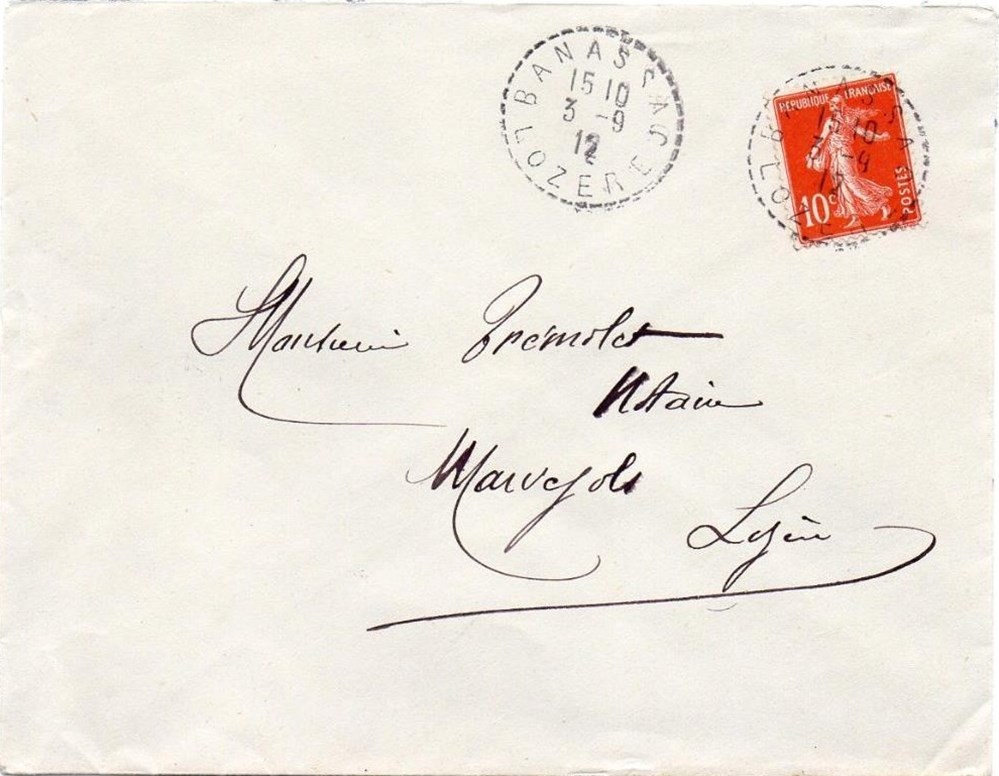 BANASSAC
15 10
3 -9
12
LOZERE
REPUBLIQUE FRANÇAISE
10c
POSTES
BANASSA
15 10
3 -9
LOZE
Monsieur Trémolet
Notaire
Marvejols
Lozère